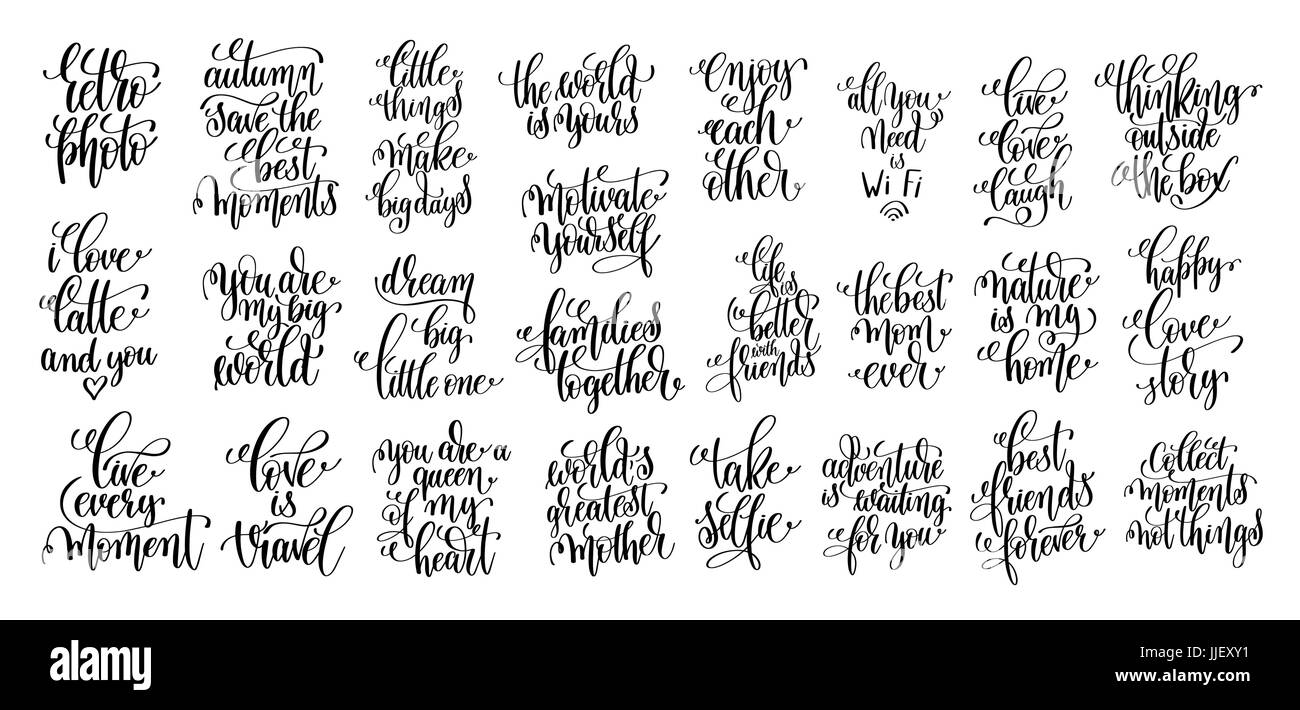 retro
photo
autumn
save the
best
moments
little
things
make
big days
the world
is yours
motivate
yourself
enjoy
each
other
all you
need
is
Wi Fi
live
love
laugh
thinking
outside
the box
i love
latte
and you
you are
my big
world
dream
big
little one
families
together
life is
better
with
friends
the best
mom
ever
nature
is my
home
happy
love
story
live
every
moment
love
is
travel
you are a
queen
of my
heart
world's
greatest
mother
take
selfie
adventure
is waiting
for you
best
friends
forever
collect
moments
not things
a alamy stock photo
JJEXY1
www.alamy.com